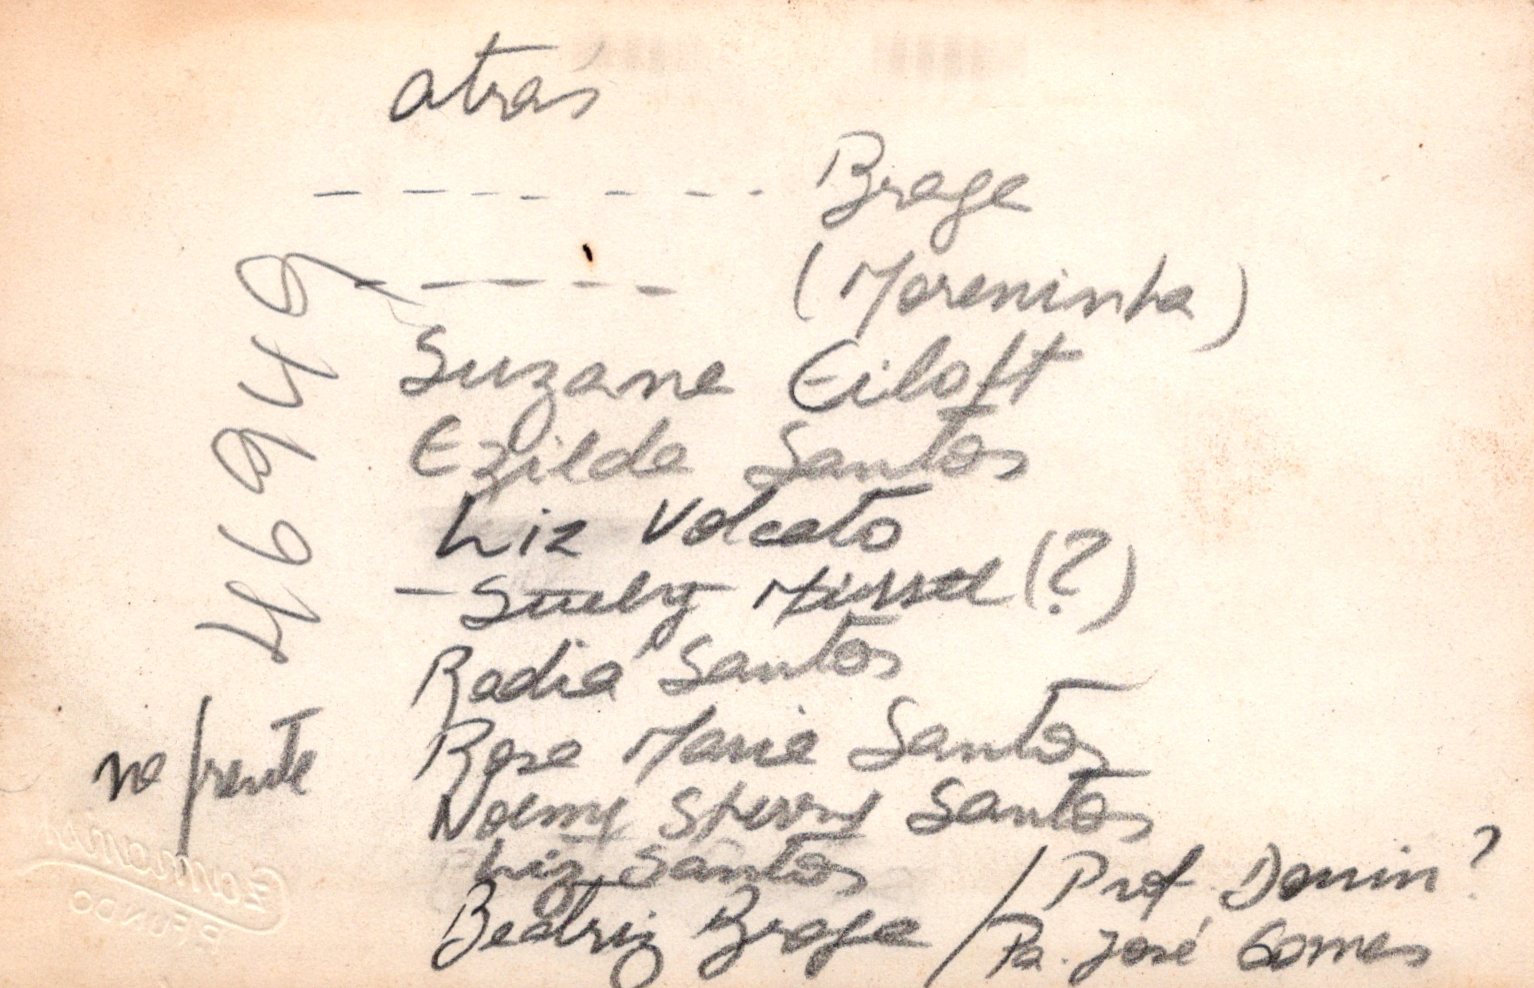 atrás
- - - - - - - Braga
- - - - - (Moreninha)
Suzana Eiloft
Ezilda Santos
Liz Volcato
- Suely (?)
Radiá Santos
Rosa Maria Santos
Noemy Sperry Santos
Liz Santos
Beatriz Braga / Prof. ?
Pa. José Gomes
na frente
46949
P. FUNDO